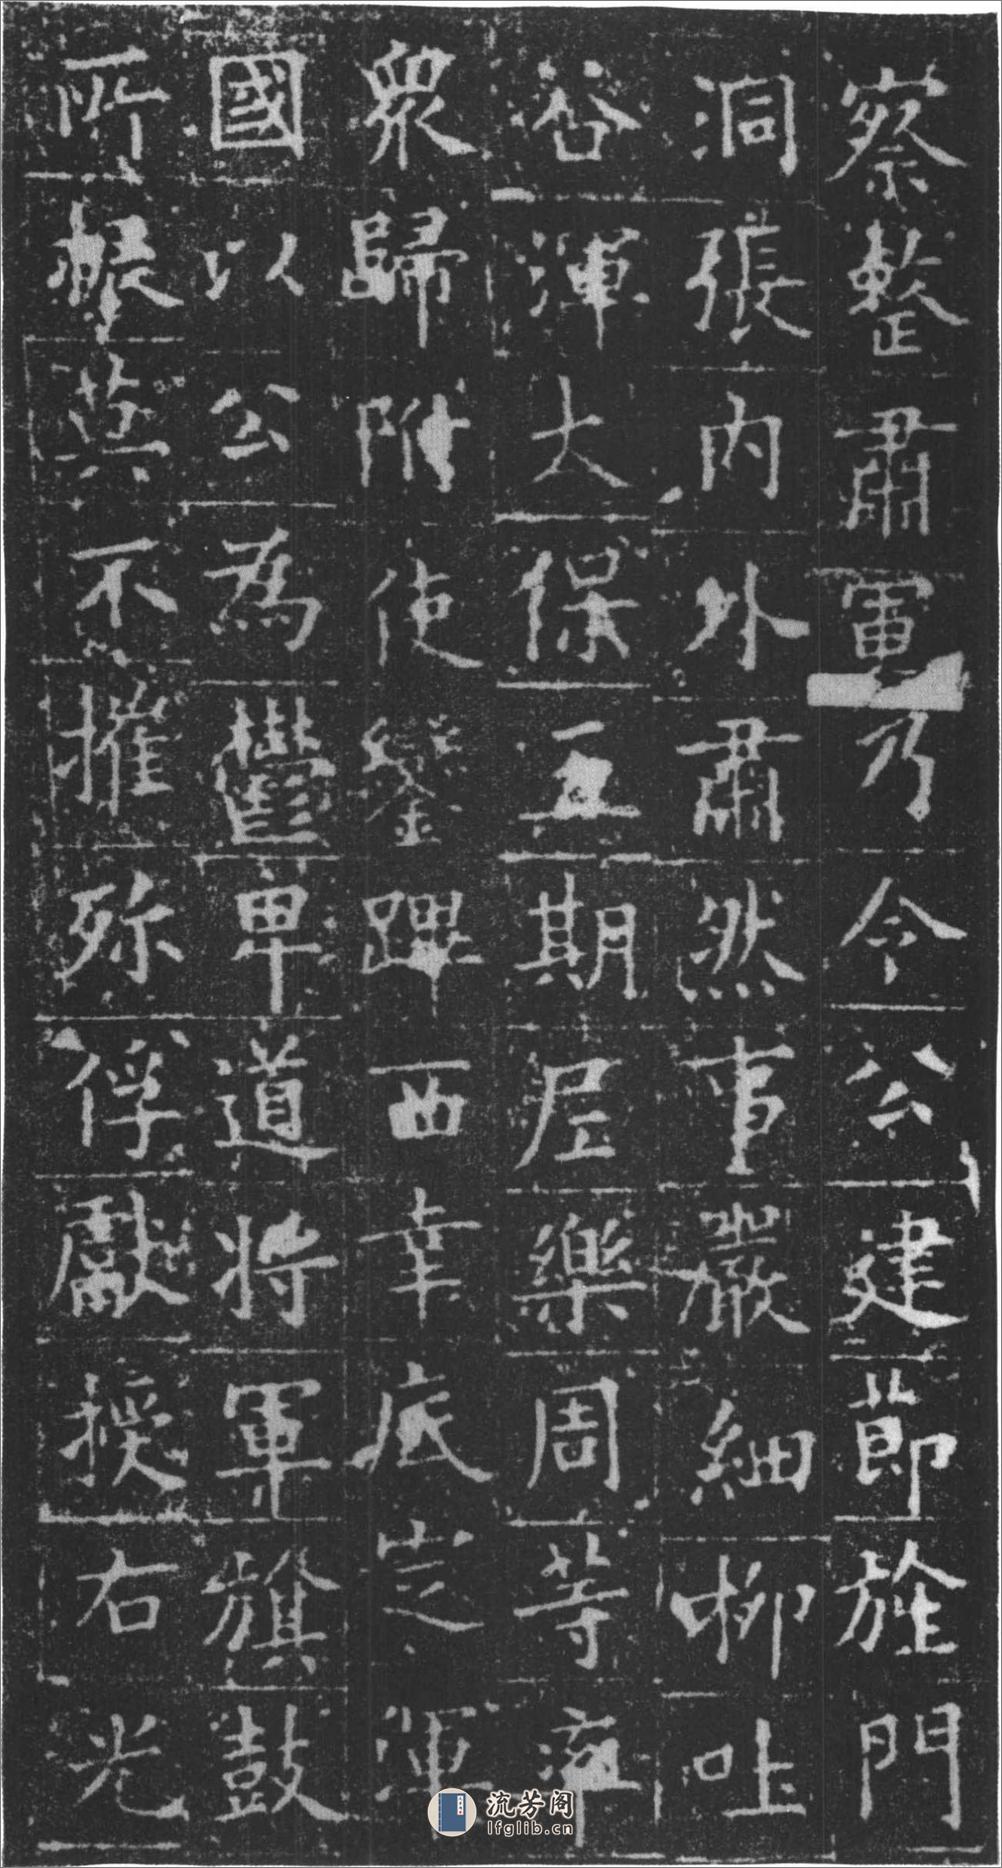 察整肅軍乃令公建節旌門
洞張内外肅然事嚴細柳吐
谷渾大保五期尼樂周等率
衆歸附使鑾蹕西幸底定渾
國以公為鬱卑道將軍旗鼓
所振莫不摧殄俘獻授右光
流芳阁
lfglib.cn